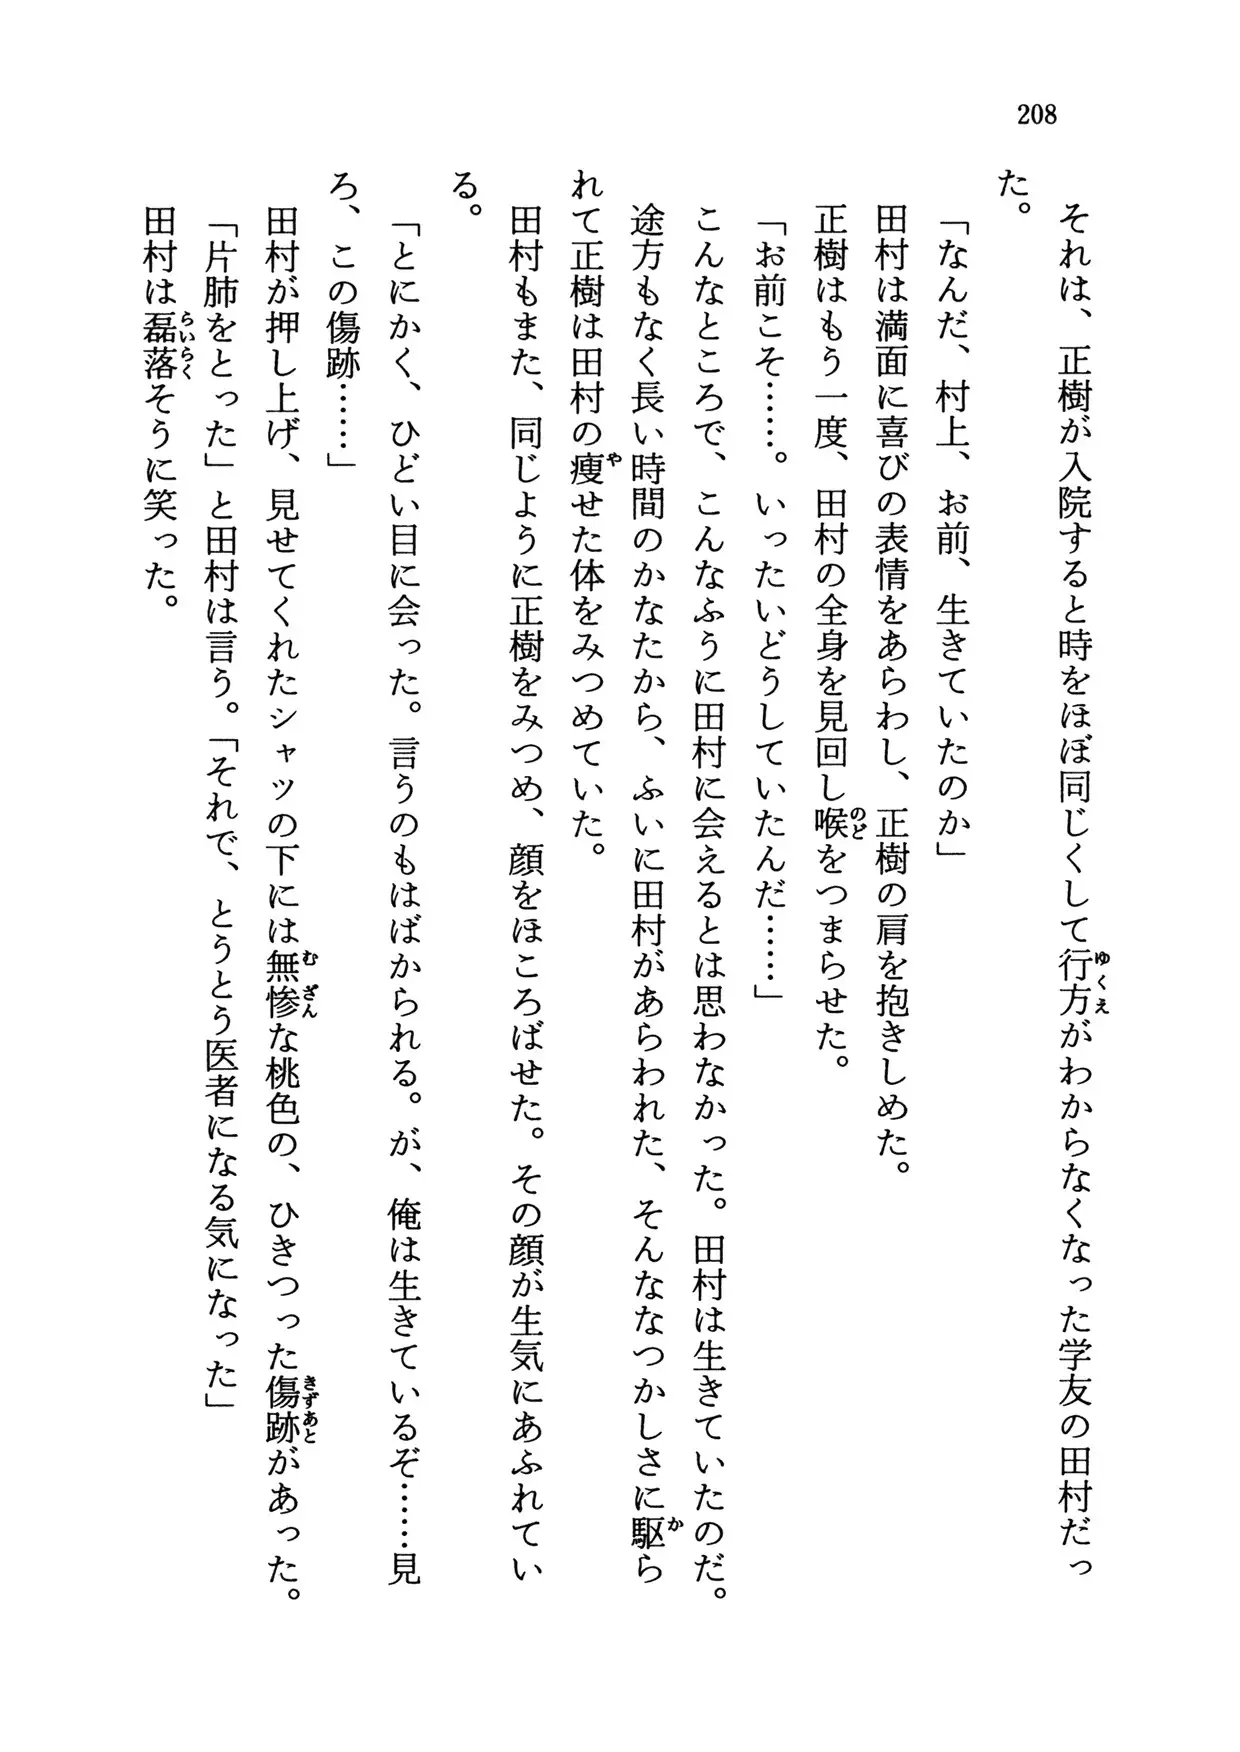 208
それは、正樹が入院すると時をほぼ同じくして行方がわからなくなった学友の田村だっ
た。
「なんだ、村上、お前、生きていたのか」
田村は満面に喜びの表情をあらわし、正樹の肩を抱きしめた。
正樹はもう一度、田村の全身を見回し喉をつまらせた。
「お前こそ……。いったいどうしていたんだ……」
こんなところで、こんなふうに田村に会えるとは思わなかった。田村は生きていたのだ。
途方もなく長い時間のかなたから、ふいに田村があらわれた、そんななつかしさに駆ら
れて正樹は田村の痩せた体をみつめていた。
田村もまた、同じように正樹をみつめ、顔をほころばせた。その顔が生気にあふれてい
る。
「とにかく、ひどい目に会った。言うのもはばかられる。が、俺は生きているぞ……見
ろ、この傷跡……」
田村が押し上げ、見せてくれたシャツの下には無惨な桃色の、ひきつった傷跡があった。
「片肺をとった」と田村は言う。「それで、とうとう医者になる気になった」
田村は磊落そうに笑った。